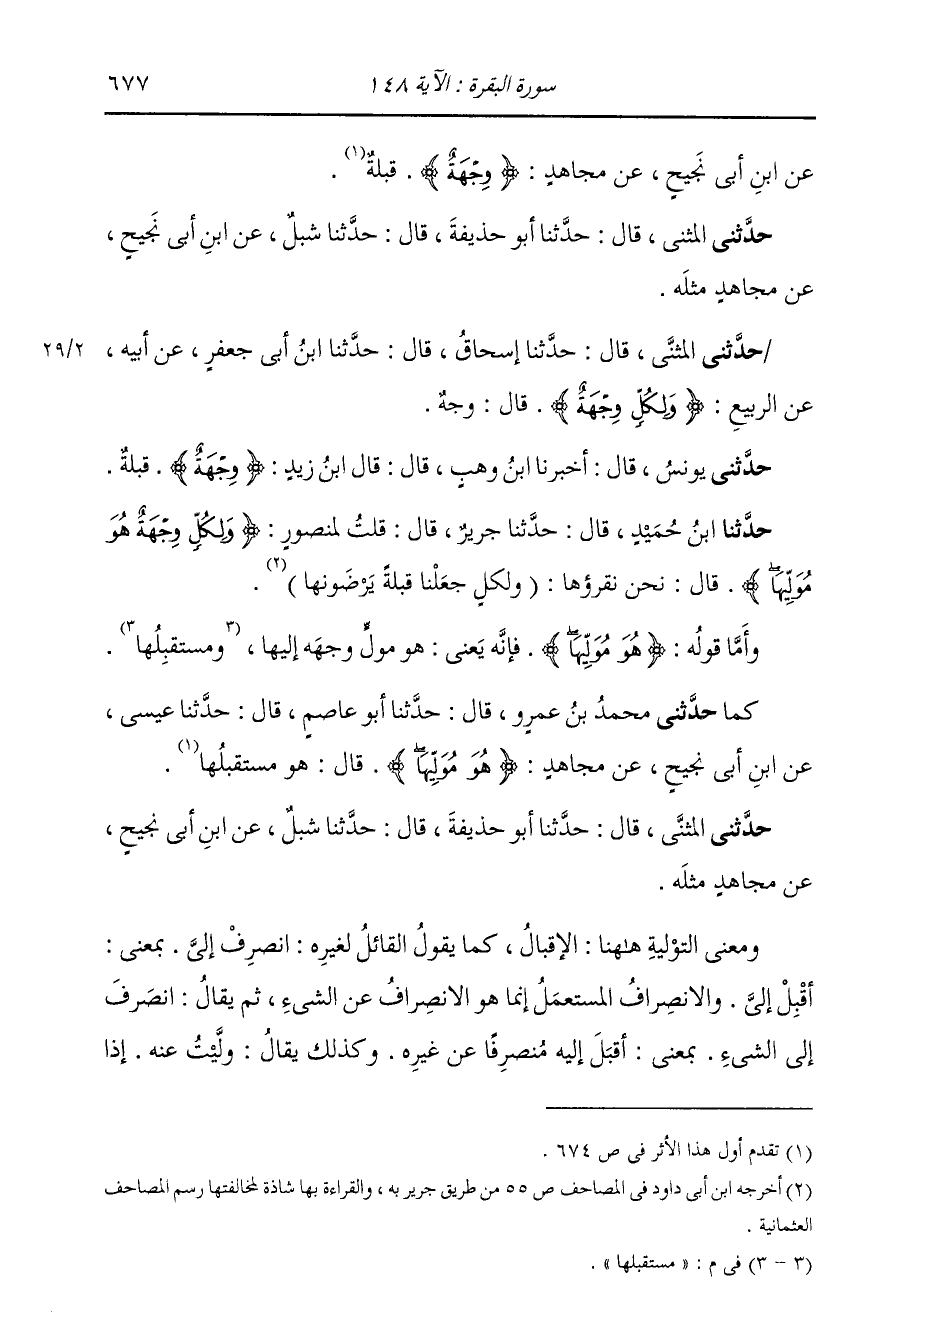 سورة البقرة : الآية ١٤٨ ٦٧٧
عن ابنِ أبى نَجيحٍ ، عن مجاهدٍ : ﴿ وِجْهَةٌ ﴾ . قبلةٌ(١) .
حدَّثنى المثنى ، قال : حدَّثنا أبو حذيفةَ ، قال : حدَّثنا شبلٌ ، عن ابنِ أبى نَجيحٍ ،
عن مجاهدٍ مثلَه .
/حدَّثنى المثنَّى ، قال : حدَّثنا إسحاقُ ، قال : حدَّثنا ابنُ أبى جعفرٍ ، عن أبيه ، ٢٩/٢
عن الربيعِ : ﴿ وَلِكُلٍّ وِجْهَةٌ ﴾ . قال : وجهٌ .
حدَّثنى يونسُ ، قال : أخبرنا ابنُ وهبٍ ، قال : قال ابنُ زيدٍ : ﴿ وِجْهَةٌ ﴾ . قبلةٌ .
حدَّثنا ابنُ حُمَيْدٍ ، قال : حدَّثنا جريرٌ ، قال : قلتُ لمنصورٍ : ﴿ وَلِكُلٍّ وِجْهَةٌ هُوَ
مُوَلِّيهَاۖ ﴾ . قال : نحن نقرؤها : ( ولكلٍ جعَلْنا قبلةً يَرْضَونها )(٢) .
وأَمَّا قولُه : ﴿ هُوَ مُوَلِّيهَاۖ ﴾ . فإنَّه يَعنى : هو مولٍّ وجهَه إليها ، (٣ومستقبِلُها٣) .
كما حدَّثنى محمدُ بنُ عمرٍو ، قال : حدَّثنا أبو عاصمٍ ، قال : حدَّثنا عيسى ،
عن ابنِ أبى نجيحٍ ، عن مجاهدٍ : ﴿ هُوَ مُوَلِّيهَاۖ ﴾ . قال : هو مستقبلُها(١) .
حدَّثنى المثنَّى ، قال : حدَّثنا أبو حذيفةَ ، قال : حدَّثنا شبلٌ ، عن ابنِ أبى نجيحٍ ،
عن مجاهدٍ مثلَه .
ومعنى التوْليةِ هٰهنا : الإقبالُ ، كما يقولُ القائلُ لغيرِه : انصرِفْ إلىَّ . بمعنى :
أقْبِلْ إلىَّ . والانصِرافُ المستعمَلُ إنما هو الانصِرافُ عن الشىءِ ، ثم يقالُ : انصَرفَ
إلى الشىءِ . بمعنى : أقبَلَ إليه مُنصرِفًا عن غيرِه . وكذلك يقالُ : ولَّيْتُ عنه . إذا
(١) تقدم أول هذا الأثر فى ص ٦٧٤ .
(٢) أخرجه ابن أبى داود فى المصاحف ص ٥٥ من طريق جرير به ، والقراءة بها شاذة لمخالفتها رسم المصاحف
العثمانية .
(٣ - ٣) فى م : « مستقبلها » .